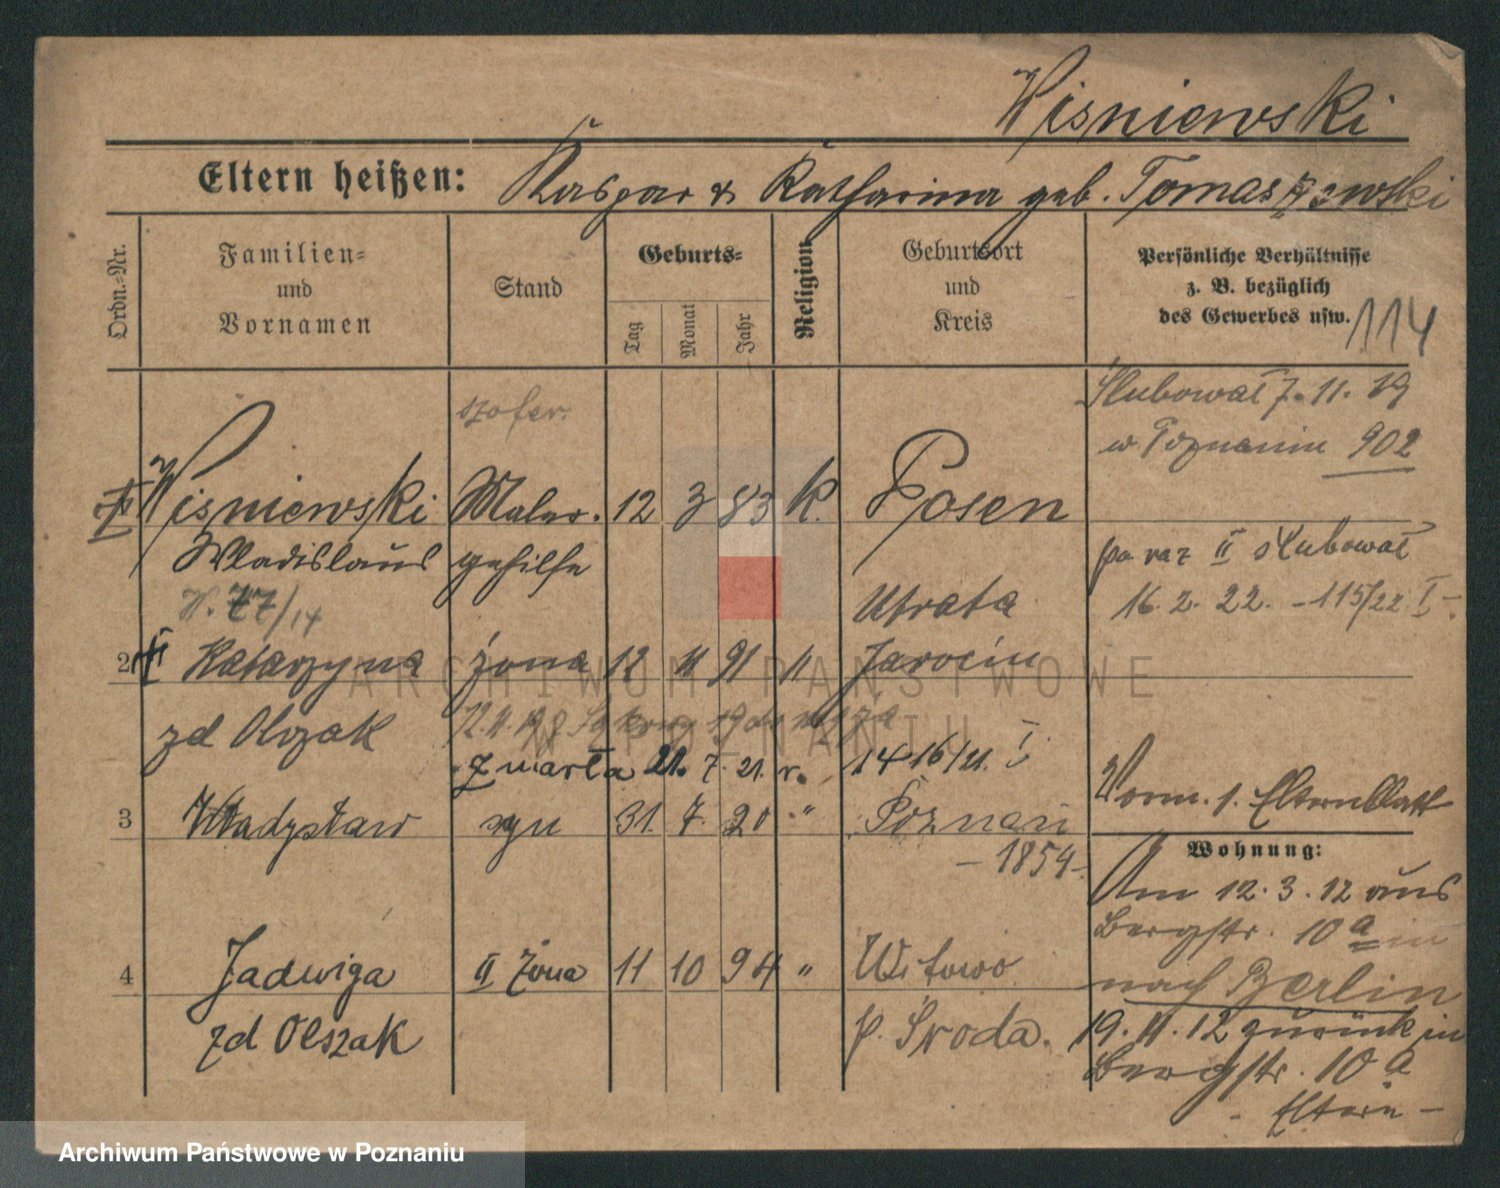 Wisniewski
Eltern heißen: Kaspar & Katharina geb. Tomaszewski
Ordn.-Nr.
Familien-
und
Vornamen
Stand
Geburts-
Tag
Monat
Jahr
Religion
Geburtsort
und
Kreis
Persönliche Verhältnisse
z. B. bezüglich
des Gewerbes usw.
114
szofer.
Ślubował 7. 11. 19
w Poznaniu 902
Wisniewski Maler- 12 3 83 K. Posen
Wladislaus gehilfe
po raz II ślubował
16. 2. 22. - 115/22. I -
77/14
Utrata
2 II Katarzyna żona 12 11 91 " Jarocin
zd Olszak
zmarła 21. 7. 21. r. 1416/21. I
3 Władysław syn 31. 7. 20 " Poznań
- 1854 -
Vorm. s. Elternblatt
Wohnung:
Am 12. 3. 12 aus
Bergstr. 10 a in
nach Berlin
4 Jadwiga II żona 11 10 94 " Witowo
zd Olszak p. Środa.
19. 11. 12 zurück in
Bergstr. 10 a
- Eltern -
ARCHIWUM PAŃSTWOWE
W POZNANIU
Archiwum Państwowe w Poznaniu